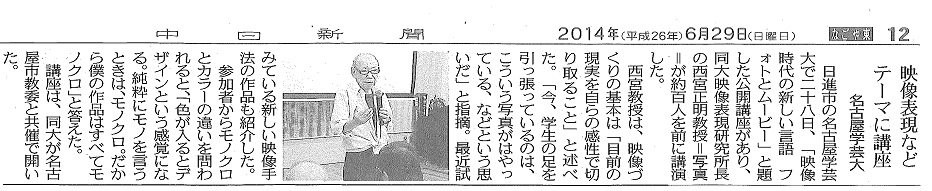 中日新聞 2014年(平成26年)6月29日(日曜日) なごや東 12
映像表現など
テーマに講座
名古屋学芸大
日進市の名古屋学芸
大で二十八日、「映像
時代の新しい言語　フ
ォトとムービー」と題
した公開講座があり、
同大映像表現研究所長
の西宮正明教授＝写真
＝が約百人を前に講演
した。
西宮教授は、映像づ
くりの基本は「目前の
現実を自らの感性で切
り取ること」と述べ
た。「今、学生の足を
引っ張っているのは、
こういう写真がはやっ
ている、などという思
いだ」と指摘。最近試
みている新しい映像手
法の作品も紹介した。
参加者からモノクロ
とカラーの違いを問わ
れると、「色が入るとデ
ザインという感覚にな
る。純粋にモノを言う
ときは、モノクロ。だか
ら僕の作品はすべてモ
ノクロ」と答えた。
講座は、同大が名古
屋市教委と共催で開い
た。